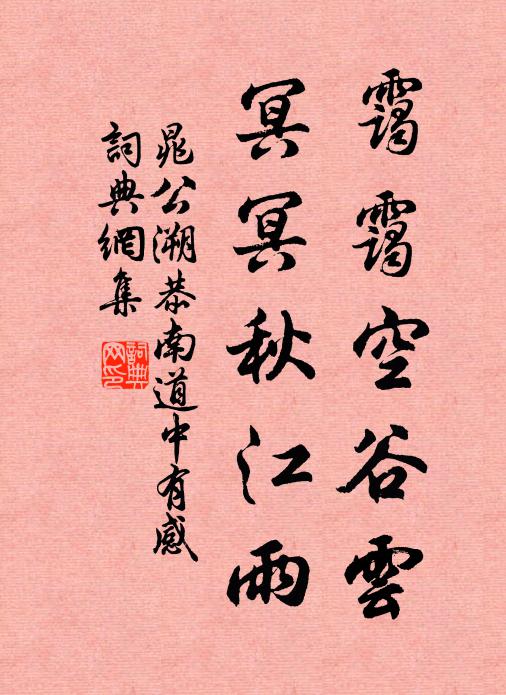 靄靄空谷雲
冥冥秋江雨
晁公溯恭南道中有感
詞典網集
詞典
网印